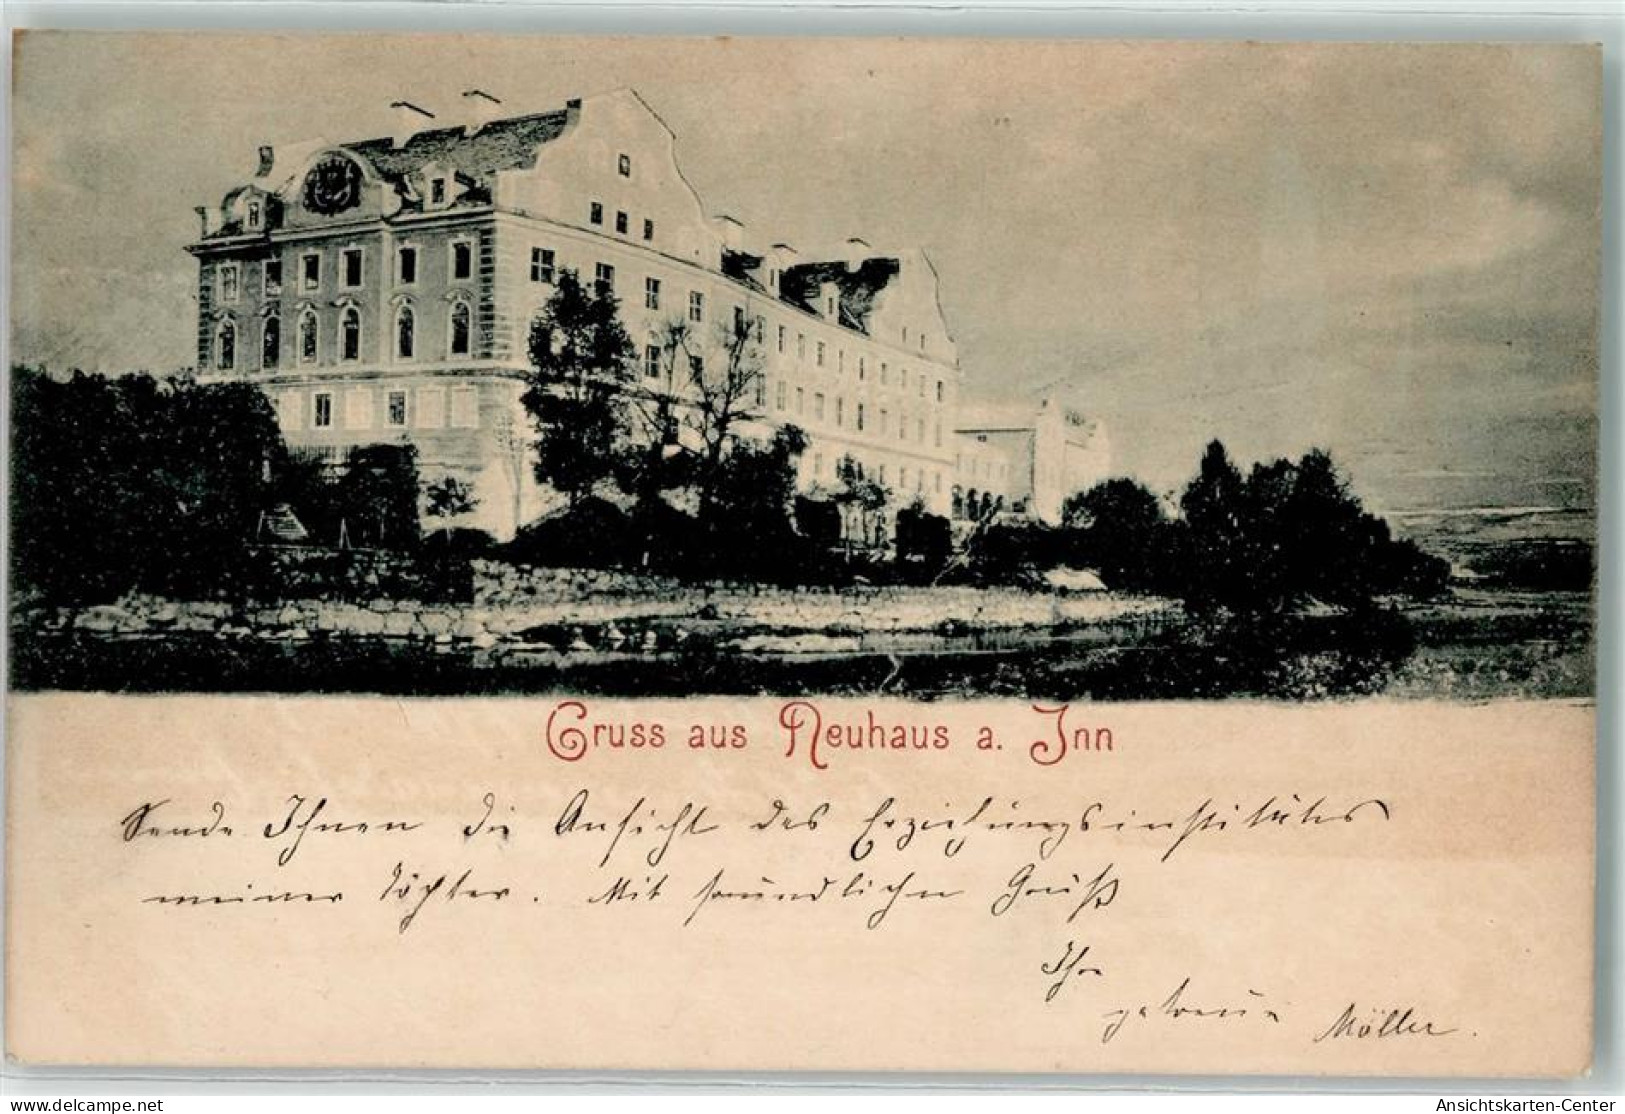 Gruss aus Neuhaus a. Inn
Sende Ihnen die Ansicht des Erziehungsinstitutes
meiner Töchter. Mit freundlichem Gruß
Ihre
getreue Möller.
oldthing.de
Ansichtskarten-Center